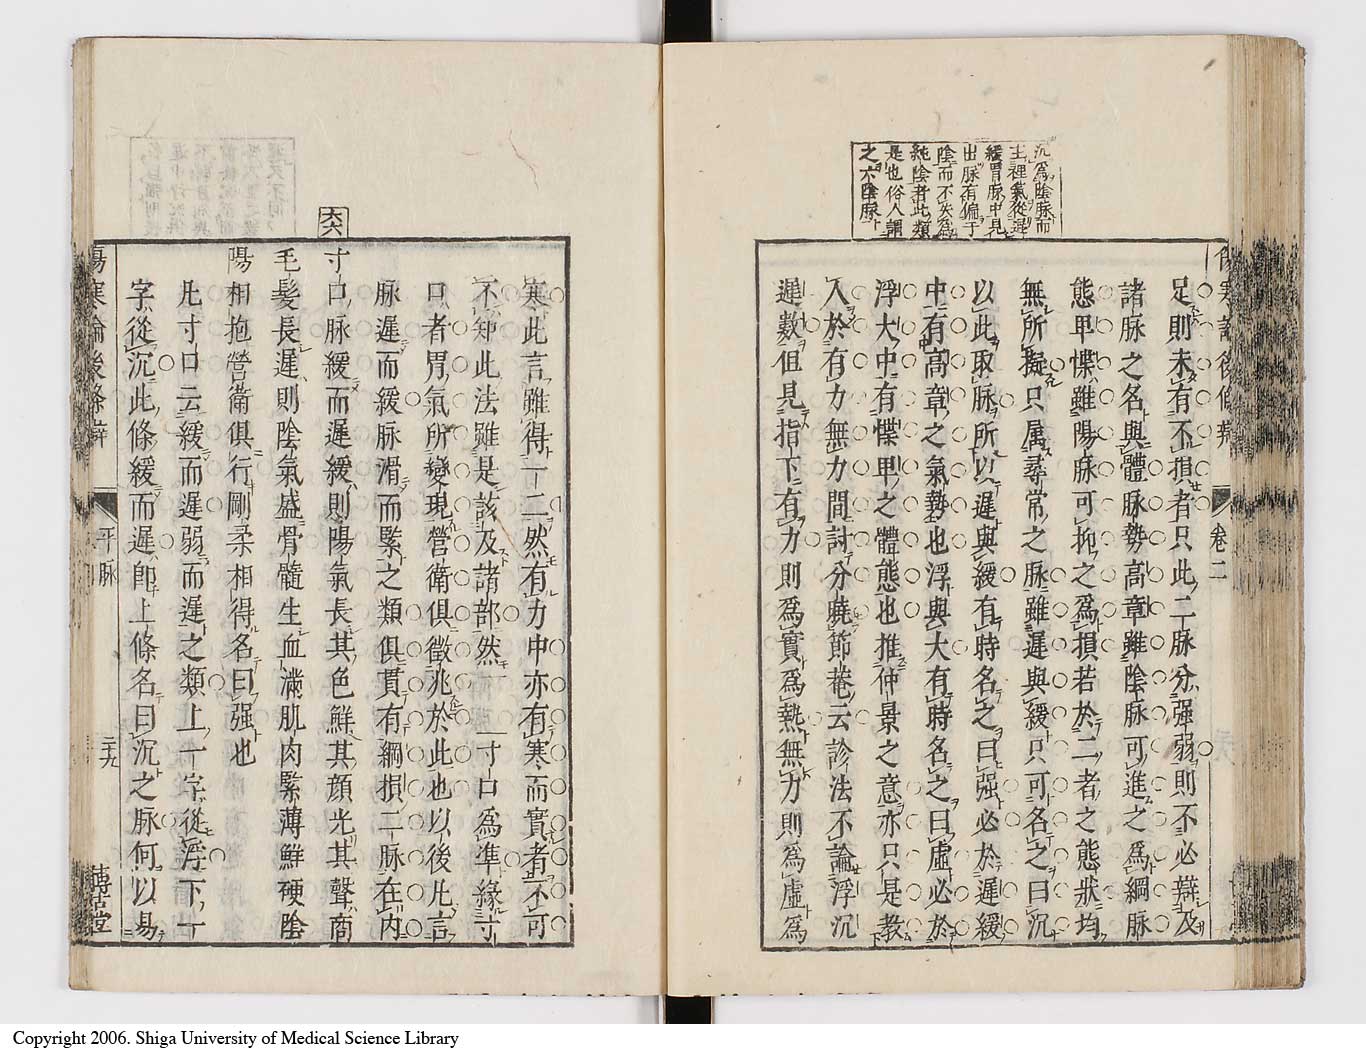 沉爲陰脉而
主裡氣從遲
緩胃脉中見
出脉有偏于
陰而不失爲
純陰者此類
是也俗人謂
之六陰脉
卷二
足則未有不損者只此二脉分強弱則不必辯及
諸脉之名與體脉勢高章雖陰脉可進之爲綱脉
態卑惵雖陽脉可抑之爲損若於二者之態狀均
無所擬只属尋常之脉雖遲與緩只可名之曰沉
以此取脉所以遲與緩有時名之曰強必於遲緩
中有高章之氣勢也浮與大有時名之曰虛必於
浮大中有惵卑之體態也推仲景之意亦只是教
人於有力無力間討分曉節菴云診法不論浮沉
遲數但見指下有力則爲實爲熱無力則爲虛爲
寒此言雖得一二然有力中亦有寒而實者不可
不知此法雖是該及諸部然 寸口爲準緣寸
口者胃氣所變現營衛俱徵兆於此也以後凡言
脉遲而緩脉滑而緊之類俱貫有綱損二脉在内
六六
寸口脉緩而遲緩則陽氣長其色鮮其顔光其聲商
毛髮長遲則陰氣盛骨髓生血滿肌肉緊薄鮮硬陰
陽相抱營衛俱行剛柔相得名曰强也
凡寸口云緩而遲弱而遲之類上一字從浮下一
字從沉此條緩而遲即上條名曰沉之脉何以易
傷寒論後條辨
平脉
二十九
博古堂
Copyright 2006. Shiga University of Medical Science Library